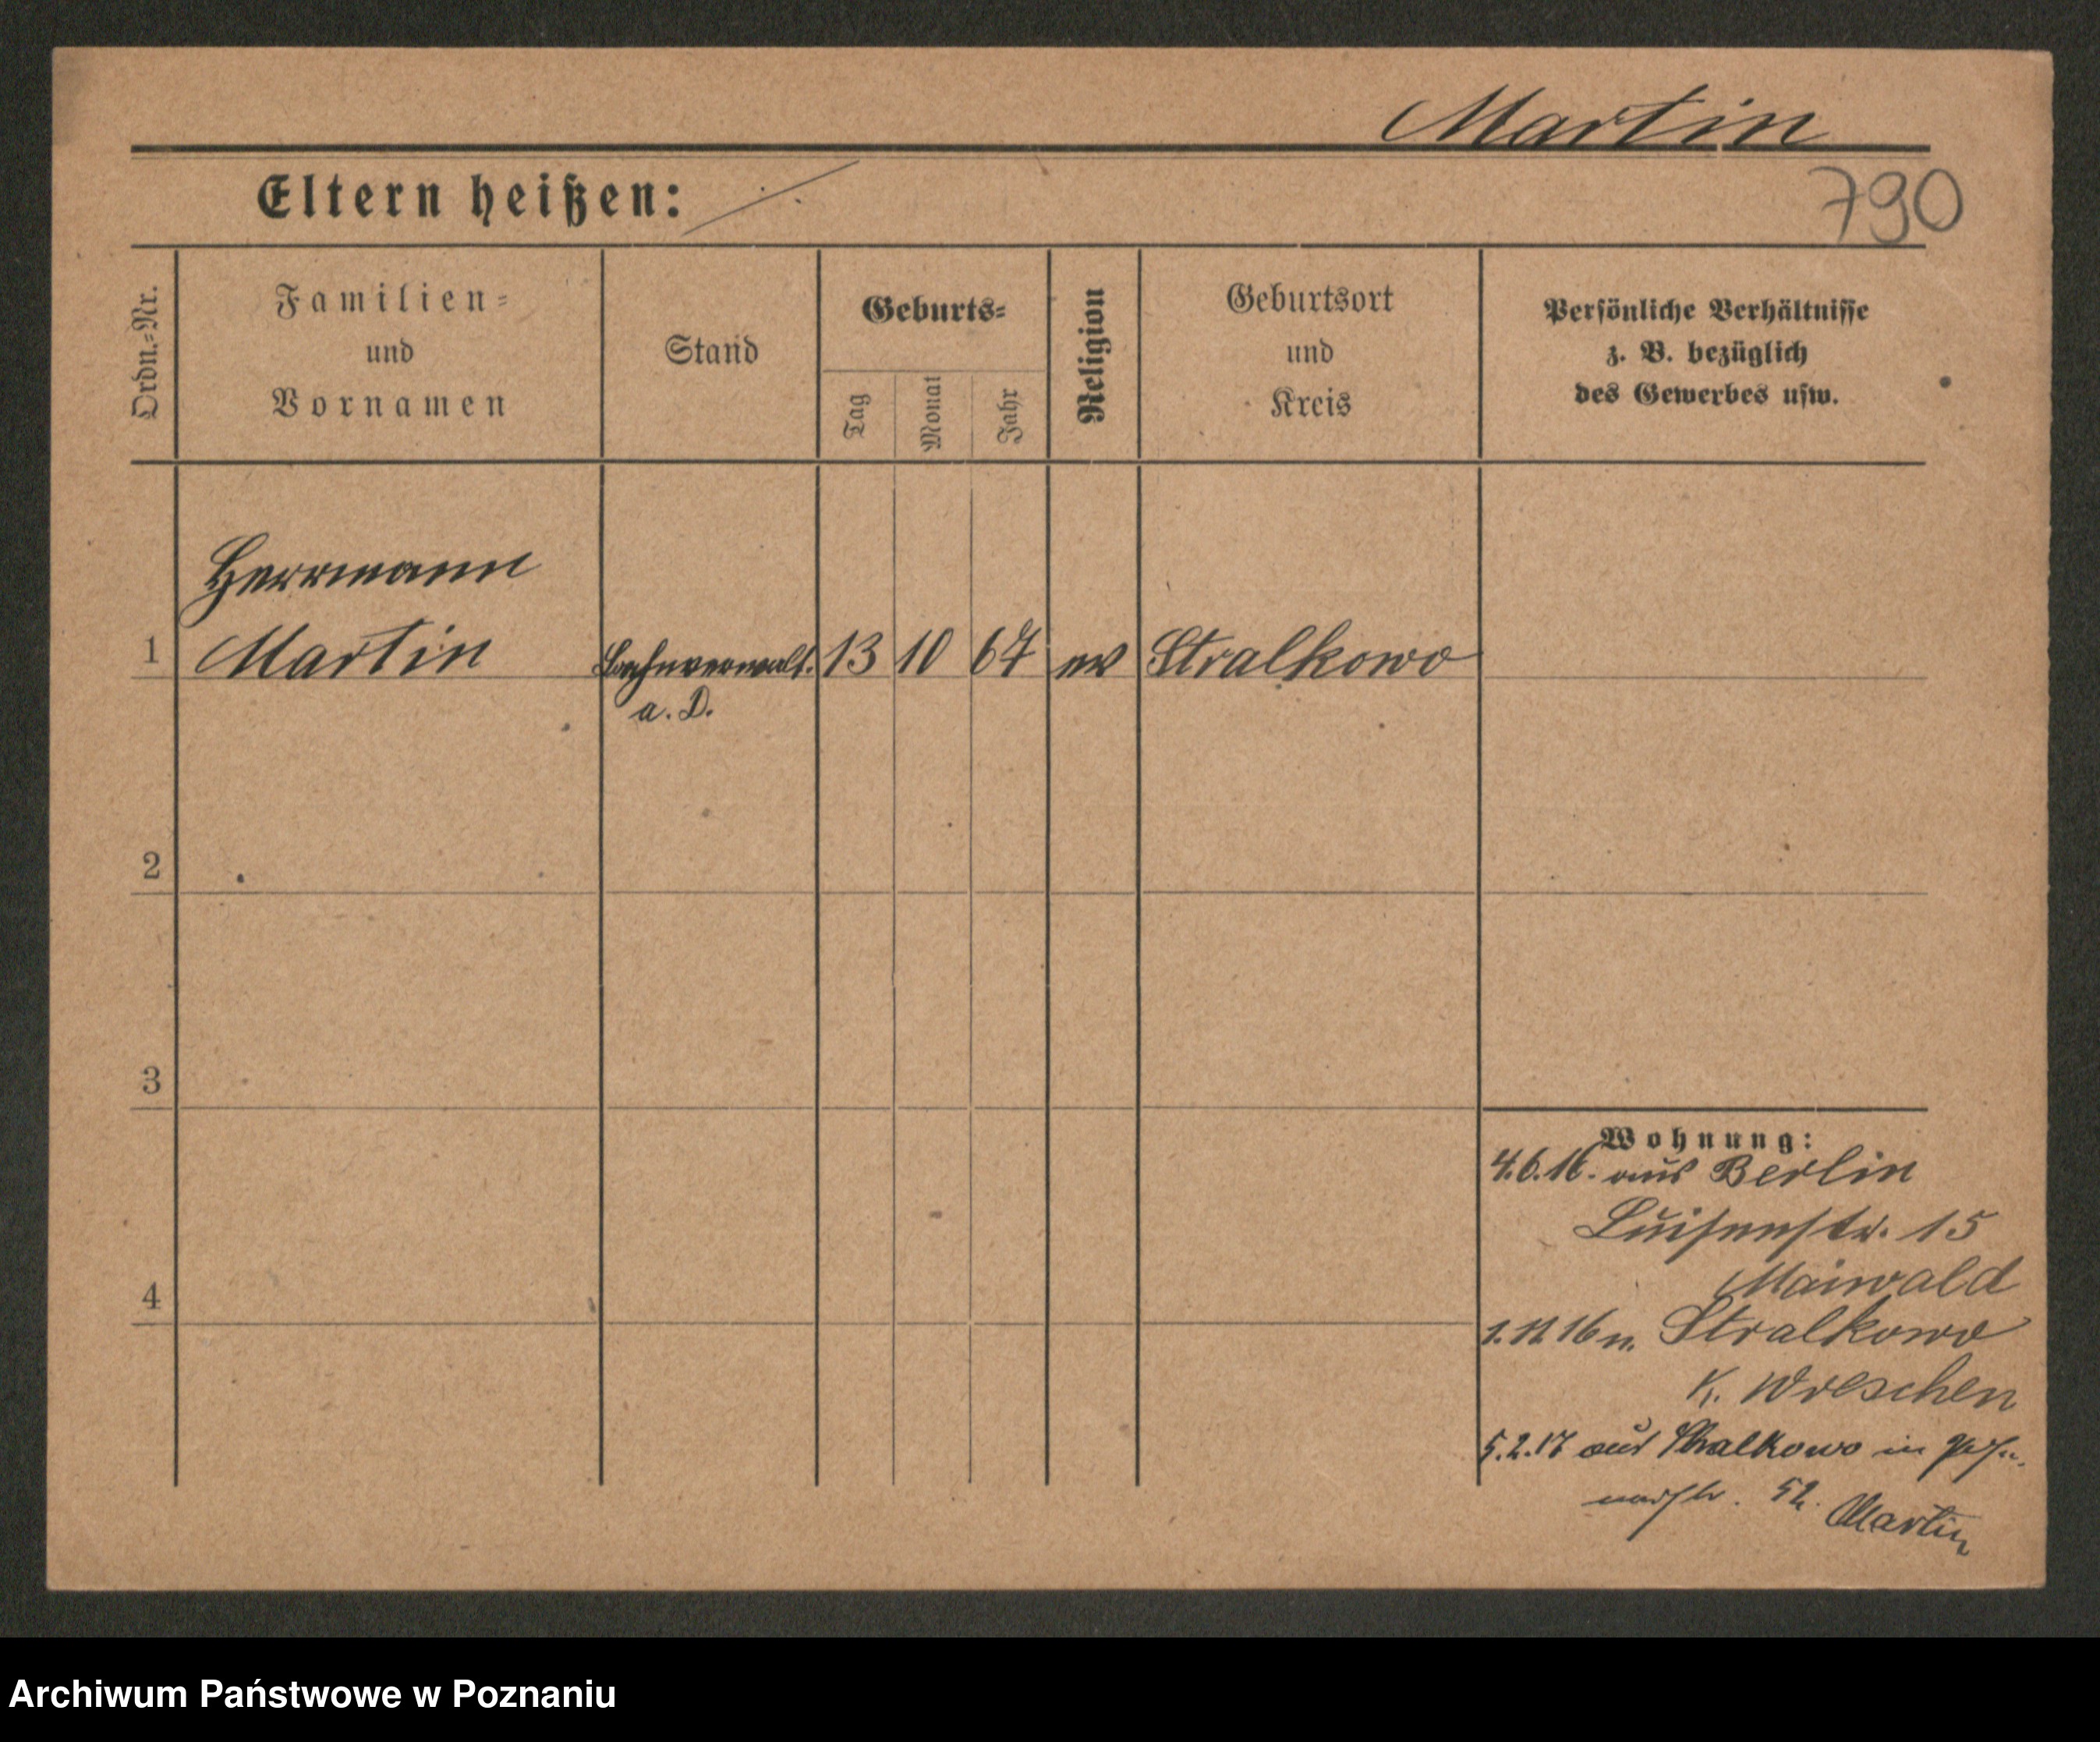 Martin
Eltern heißen:
790
Ordn.-Nr.
Familien-
und
Vornamen
Stand
Geburts-
Tag
Monat
Jahr
Religion
Geburtsort
und
Kreis
Persönliche Verhältnisse
z. B. bezüglich
des Gewerbes usw.
Herrmann
1 Martin 13 10 67 ev Stralkowo
a. D.
2
3
4
Wohnung:
4.6.16. aus Berlin
Luisenstr. 15
Maiwald
1.11 16 n. Stralkowo
K. Wreschen
5.2.17 aus Stralkowo in
52. Martin
Archiwum Państwowe w Poznaniu